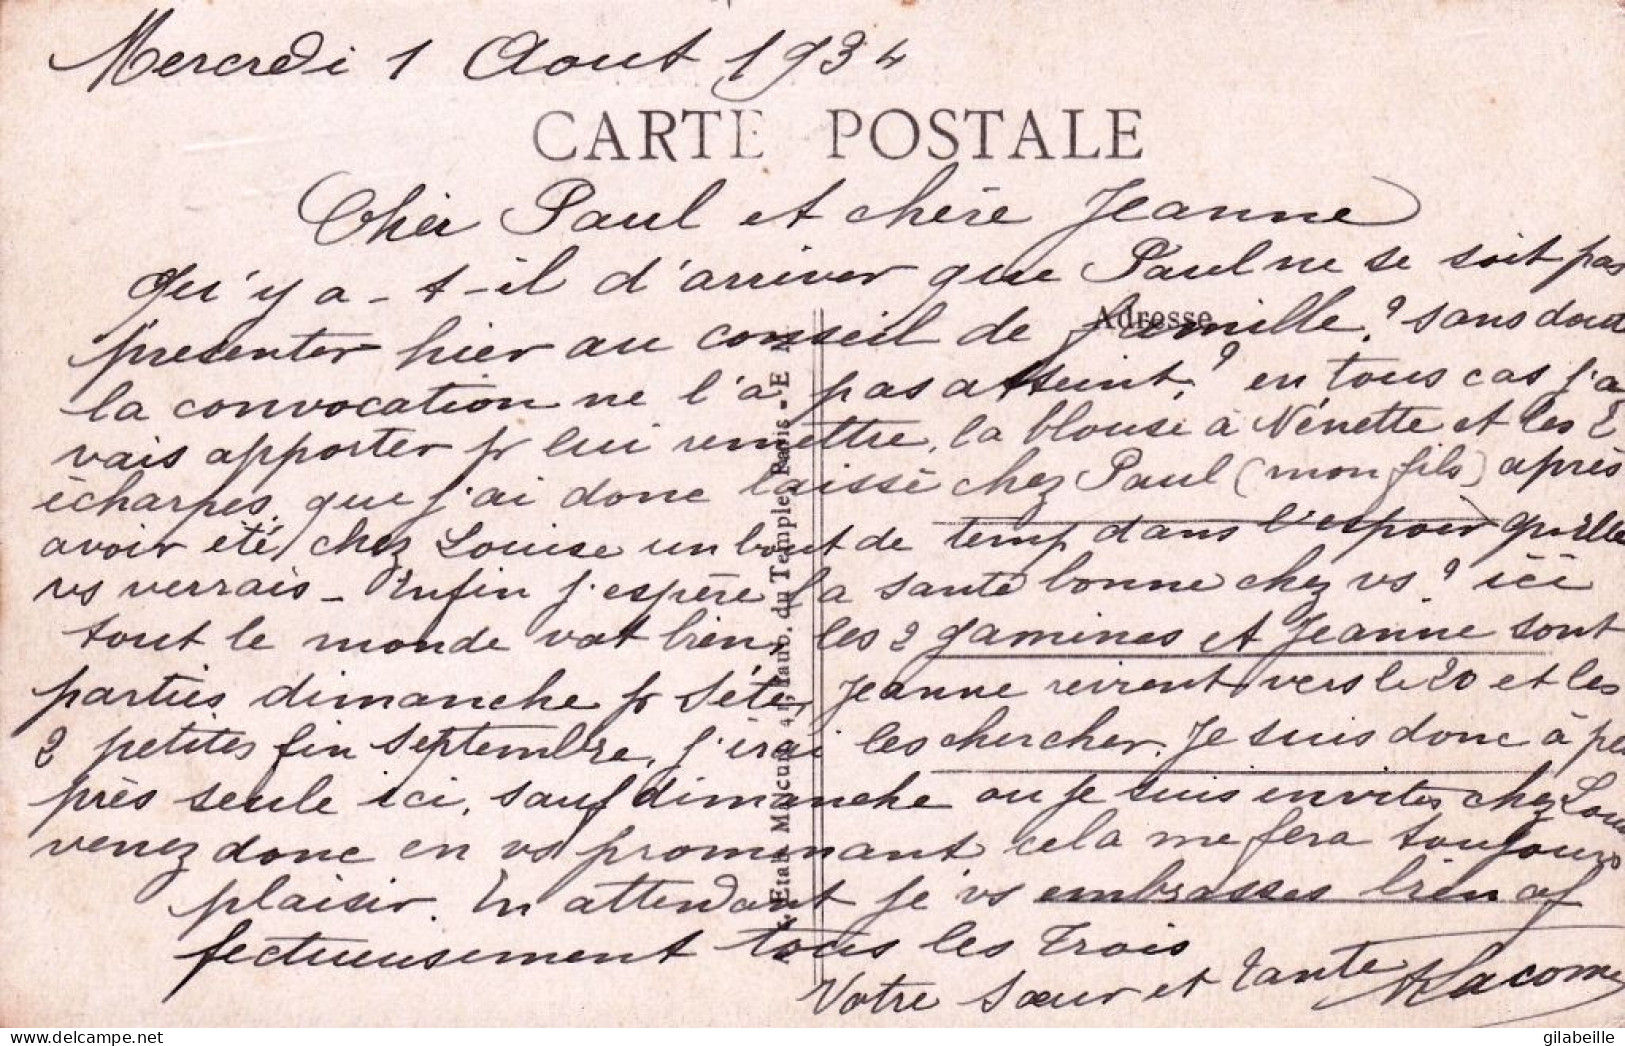 Mercredi 1 Aout 1934
CARTE POSTALE
Cher Paul et chère Jeanne
Qu'y a-t-il d'arriver que Paul ne se soit pas
Adresse
presenter hier au conseil de famille? sans dout
la convocation ne l'a pas atteint? en tous cas j'a
vais apporter pr lui remettre, la blouse à Nénette et les 2
écharpes, que j'ai donc laissé chez Paul (mon fils) après
avoir eté chez Louise un bout de temp dans l'espoir qu'elle
vs verrais - Enfin j'espère la santé bonne chez vs? ici
tout le monde vat bien, les 2 gamines et Jeanne sont
parties dimanche pr Séte, Jeanne revient vers le 20 et les
2 petites fin septembre, j'irai les chercher. Je suis donc à peu
près seule ici, sauf dimanche ou je suis invites chez Lou
venez donc en vs promenant cela me fera toujours
plaisir. En attendant je vs embrasses bien af
fectueusement tous les trois
Votre Sœur et Tante Lacome
du Temple, Paris - E
gilabeille